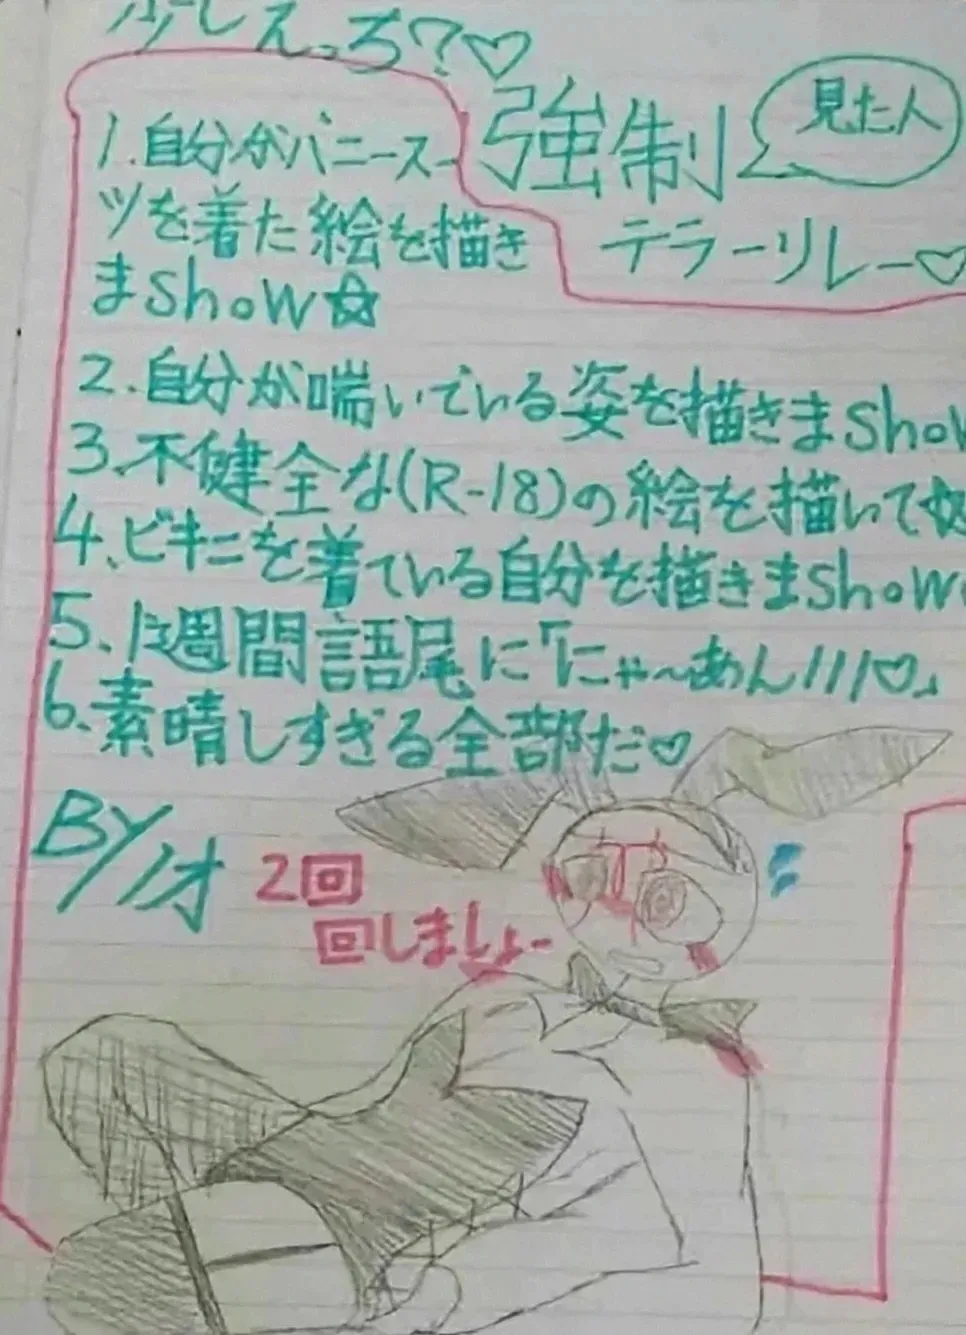 少しえっち?♡
強制
見た人
テラーリレー♡
1.自分がバニースー
ツを着た絵を描き
まShow☆
2.自分が喘いでいる姿を描きまShow
3.不健全な(R-18)の絵を描いて
4.ビキニを着ている自分を描きまShow
5.1週間語尾に「にゃ〜あん///♡」
6.素晴しすぎる全部だ♡
BY/ノオ
2回
回しましょー